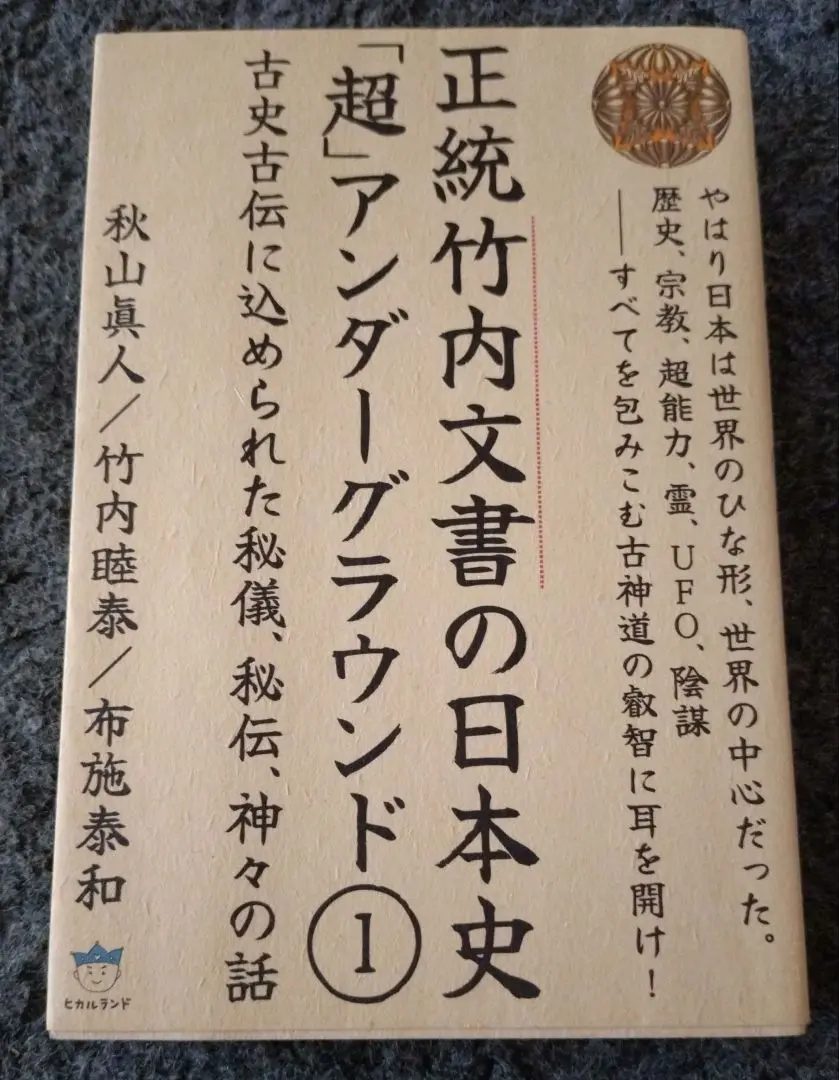 やはり日本は世界のひな形、世界の中心だった。
歴史、宗教、超能力、霊、UFO、陰謀
──すべてを包みこむ古神道の叡智に耳を開け！
正統竹内文書の日本史
「超」アンダーグラウンド①
古史古伝に込められた秘儀、秘伝、神々の話
秋山眞人／竹内睦泰／布施泰和
ヒカルランド